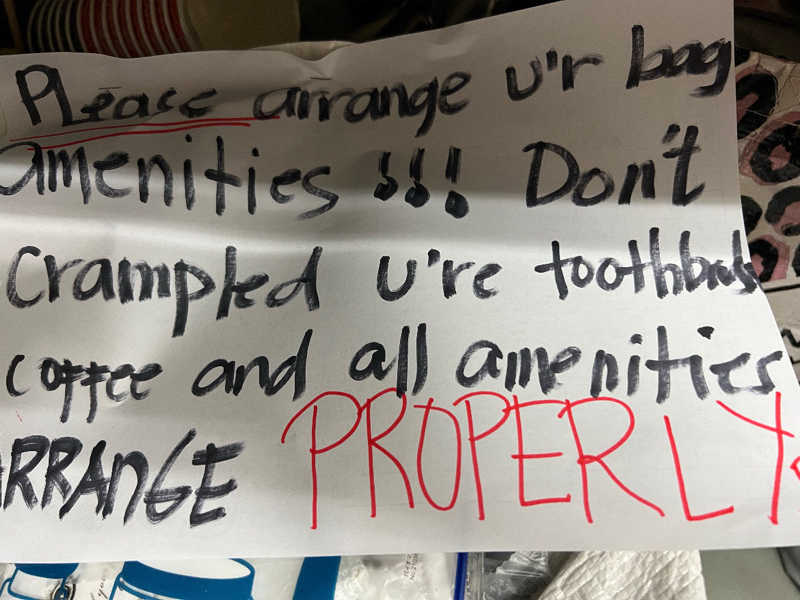 Please arrange u'r bag
amenities !!! Don't
Crampled u're toothbrush
coffee and all amenities
ARRANGE PROPERLY